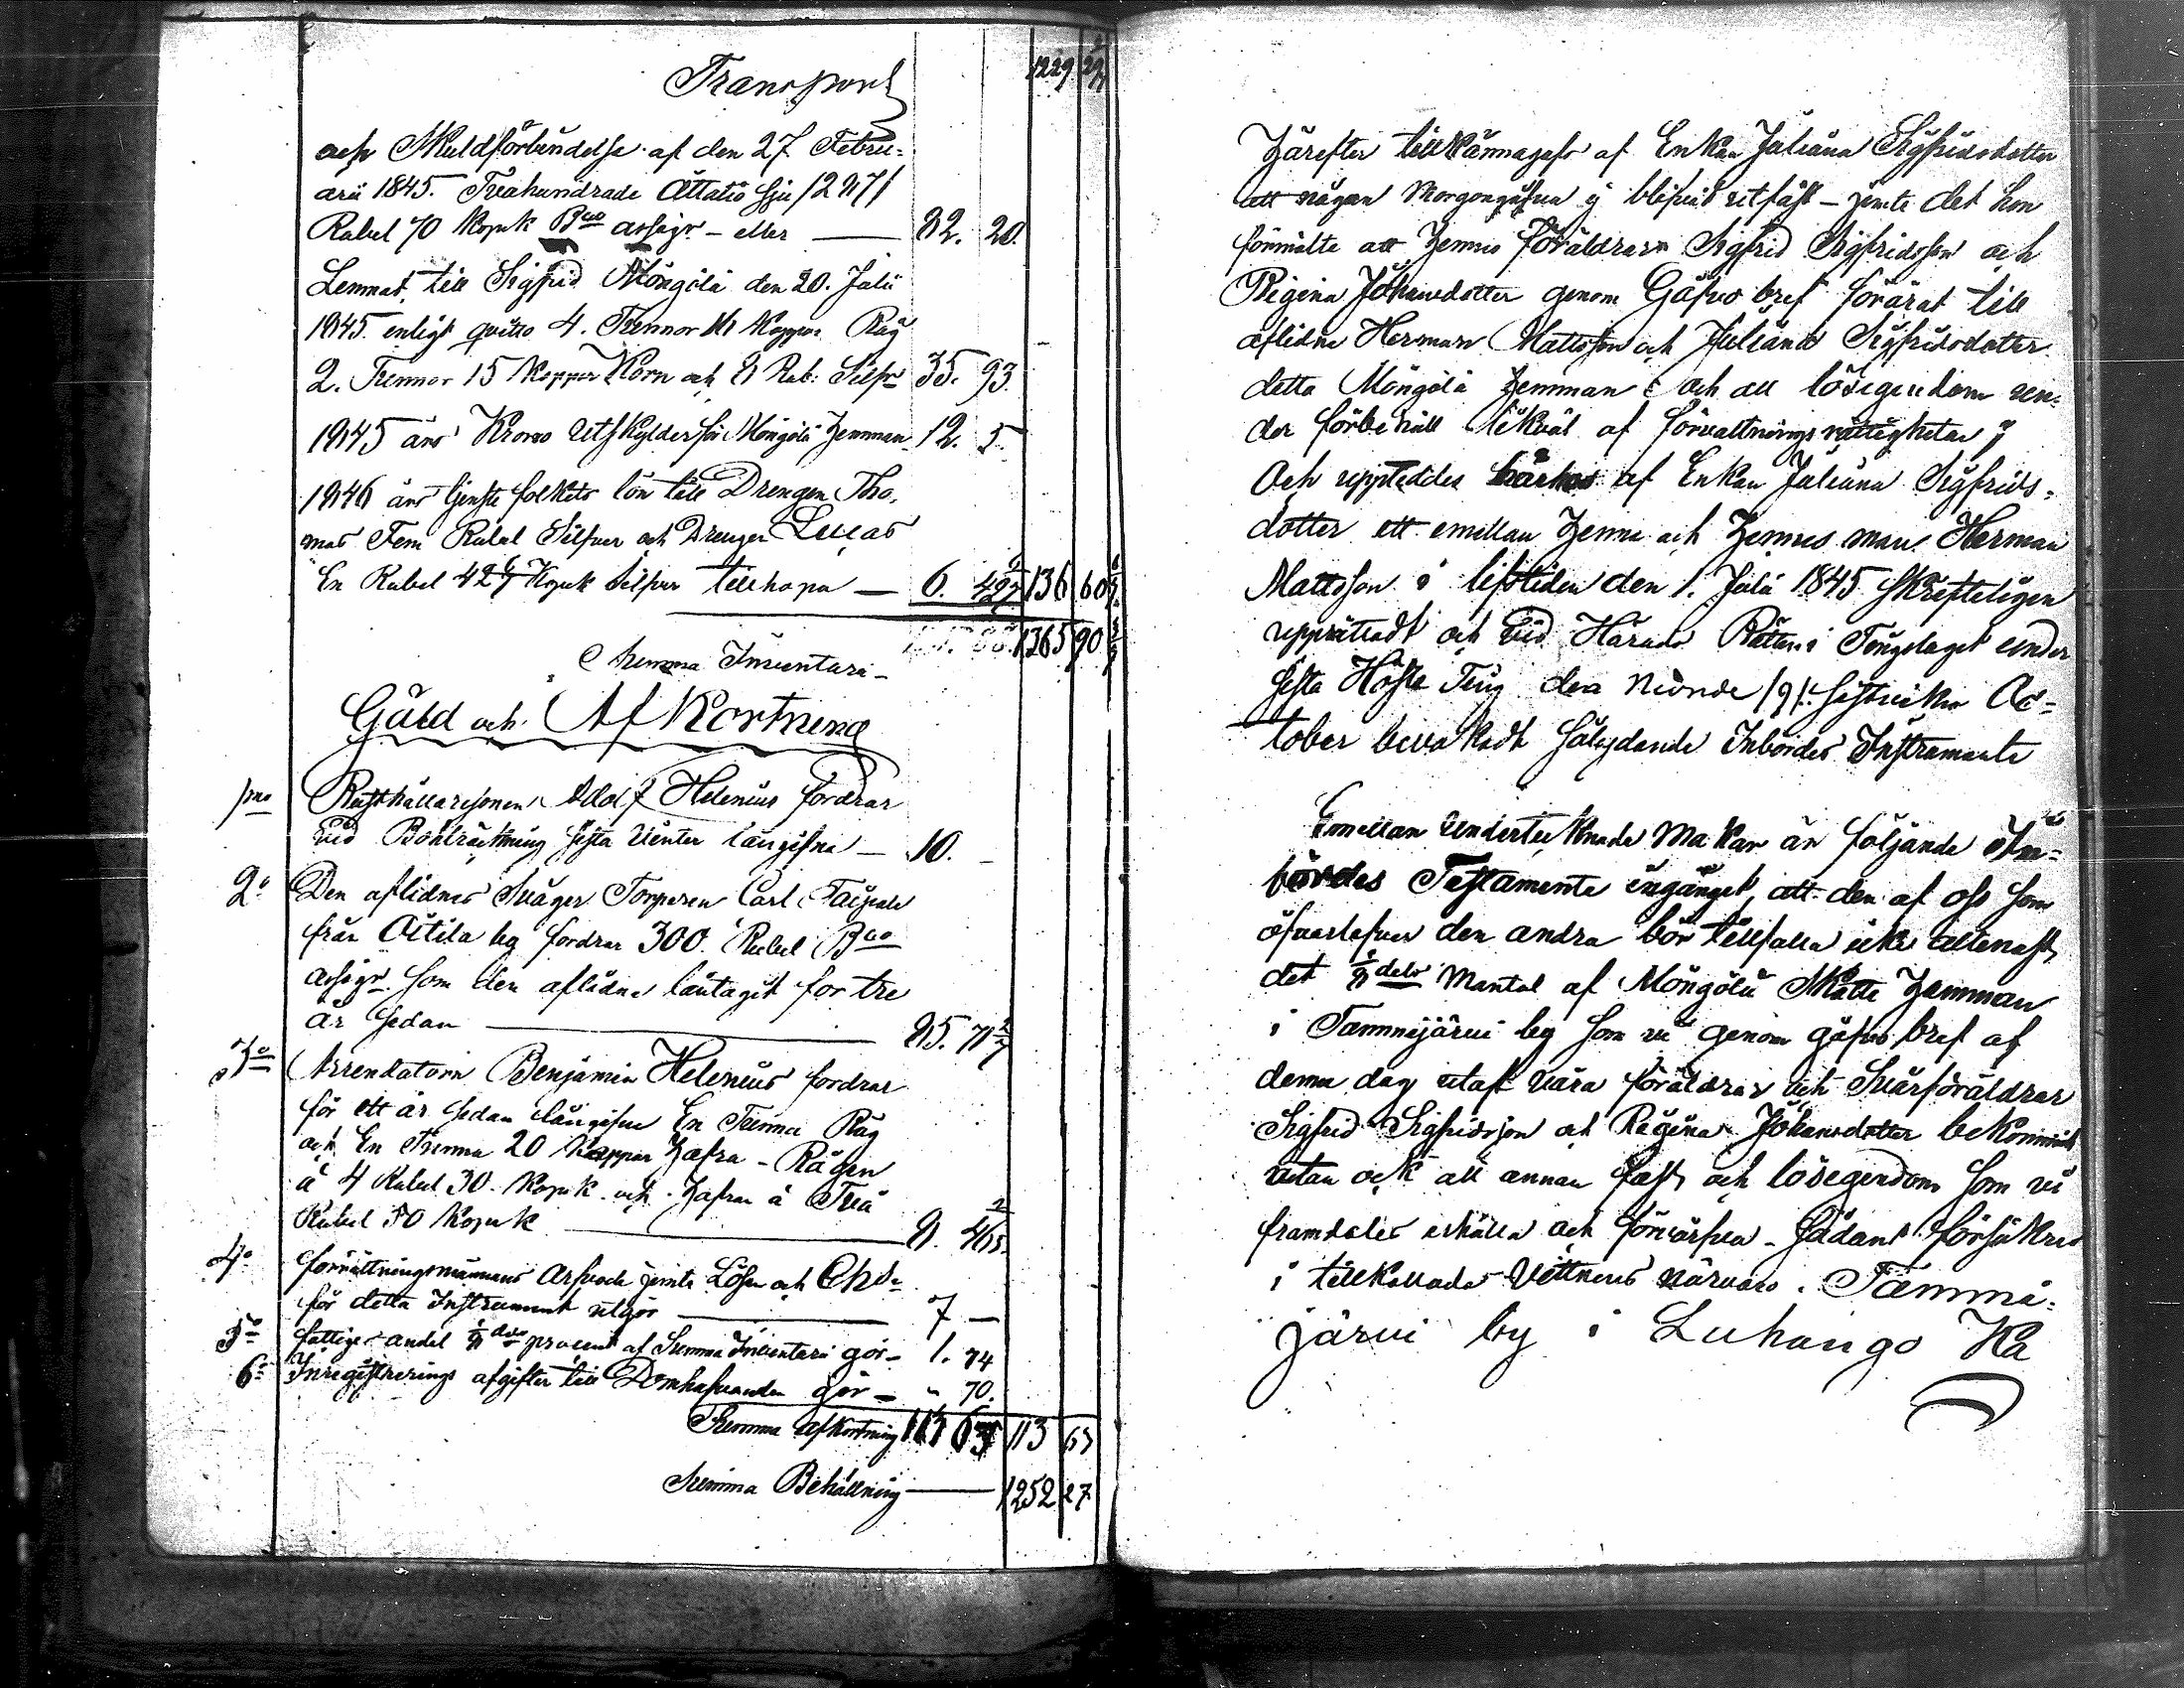 Transport 1229 29
Skuldförbindelse af den 27 Febru=
arii 1845. Tvåhundrade Åttatio sju /287/
Rubel 70 Kopek Bco assign - eller — 82. 20.
Lemnat till Sigfrid Möngölä den 20. Julii
1845 enligt qvitto 4. Tunnor Kappar Råg
2. Tunnor 15 Kappar Korn och 8 Rub: Silfver 35. 93.
1845 års Krono utskylder för Möngölä Hemman 12. 5.
1846 års tjenste folkets lön till Drengen Tho=
mas Fem Rubel Silfver och Drengen Lucas
En Rubel 42 6/7 Kopek Silfver tillhopa — 6. 42 6/7 136 60
Summa Inventarii - 1365 90
Gäld och Afkortning
1mo Rusthållaresonen Adolf Helenius fordrar
vid Bouträkning sista Vinter långifne — 10. -
2o Den aflidnes Svåger Torparen Carl Taipale
från Oitila by fordrar 300. Rubel Bco
assign. som den aflidne låntagit for tre
år sedan — 85. 71 3/7
3o Arrendatorn Benjamin Helenius fordrar
för ett år sedan långifne En Tunna Råg
och En Tunna 20 Kappar Hafra - Rågen
á 4 Rubel 30. Kopek och Hafran á Två
Rubel 50 Kopek — 8. 46
4o Förrättningsmannens Arfvode jemte Lösen och
för detta Instrument utgör — 7 —
5o Fattiges andel 1/8 dels procent af Summa Inventarii gör - 1. 74
6o Inregistrerings afgifter till Domhafvanden gör - " 70.
Summa afkortning 113 63 113 63
Summa Behållning — 1252 27
Härefter tillkännagafs af Enkan Juliana Sigfridsdotter
att någon Morgongåfva ej blifvit utfäst - jemte det hon
förmälte att Hennes Föräldrar Sigfrid Sigfridsson och
Regina Johansdotter genom Gåfvo bref förärat till
aflidne Herman Mattsson och Juliana Sigfridsdotter
detta Möngölä Hemman och all lösegendom un=
der förbehåll likväl af förvaltnings rättigheten
Och uppteddes härhos af Enkan Juliana Sigfrids=
dotter ett emellan Henne och Hennes man Herman
Mattsson i lifstiden den 1. Julii 1845 skrifteligen
upprättadt och vid Härads Rätten i Tingslaget under
sista Höste Ting den Nionde /9/ sistvikne Oc=
tober bevakadt sålydande Inbördes Testamente
Emellan Undertecknade Makar är följande In=
bördes Testamente ingånget, att den af oss som
öfverlefver den andra bör tillfalla icke allenast
det 1/8 dels Mantal af Möngölä Skatte Hemman
i Tammijärvi by som vi genom gåfvo bref af
denna dag utaf våra föräldrar och Svärföräldrar
Sigfrid Sigfridsson och Regina Johansdotter bekommit
utan ock all annan fast och lösegendom som vi
framdeles erhålla och förvärfva - sådant försäkras
i tillkallade Vittnens närvaro. Tammi=
järvi by i Luhango Ka